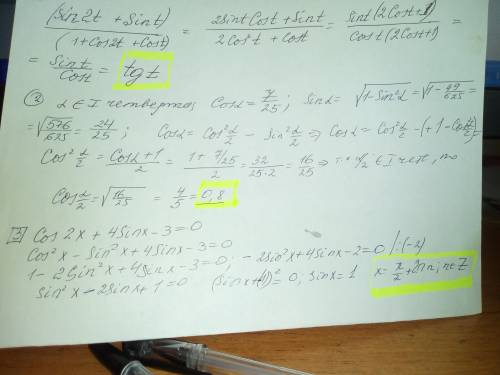 (sin2t + sint) / (1+Cos2t+Cost) = 2Sint Cost + Sint / 2Cos²t + Cost = Sint(2Cost+1) / Cost(2Cost+1) =
= Sint / Cost = tg t
② α ∈ I четверти, Cosα = 7/25; Sinα = √1-Sin²α = √1-49/625 =
= √576/625 = 24/25; Cosα = Cos² α/2 - Sin² α/2 ⇒ Cosα = Cos² α/2 -
Cos² α/2 = Cosα+1 / 2 = 1+7/25 / 2 = 32 / 25·2 = 16/25 ⇒ т.к. α/2 ∈ I чет, то
Cos α/2 = √16/25 = 4/5 = 0,8
3 Cos2x + 4Sinx - 3 = 0
Cos²x - Sin²x + 4Sinx - 3 = 0
1 - 2Sin²x + 4Sinx - 3 = 0; - 2Sin²x + 4Sinx - 2 = 0 /:(-2)
Sin²x - 2Sinx + 1 = 0 ² = 0; Sinx = 1 x = π/2 + 2πn; n∈Z